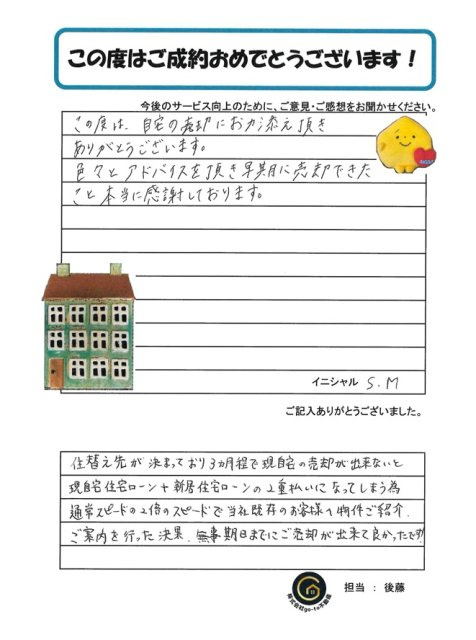 この度はご成約おめでとうございます！
今後のサービス向上のために、ご意見・ご感想をお聞かせください。
この度は、自宅の売却にお力添え頂き
ありがとうございます。
色々とアドバイスを頂き早期に売却できた
こと本当に感謝しております。
イニシャル S.M
ご記入ありがとうございました。
住替え先が決まっており3ヵ月程で現自宅の売却が出来ないと
現自宅住宅ローン+新居住宅ローンの2重払いになってしまう為
通常スピードの2倍のスピードで当社既存のお客様へ物件ご紹介、
ご案内を行った結果、無事期日までにご売却が出来て良かったです
株式会社go-to不動産
担当 : 後藤